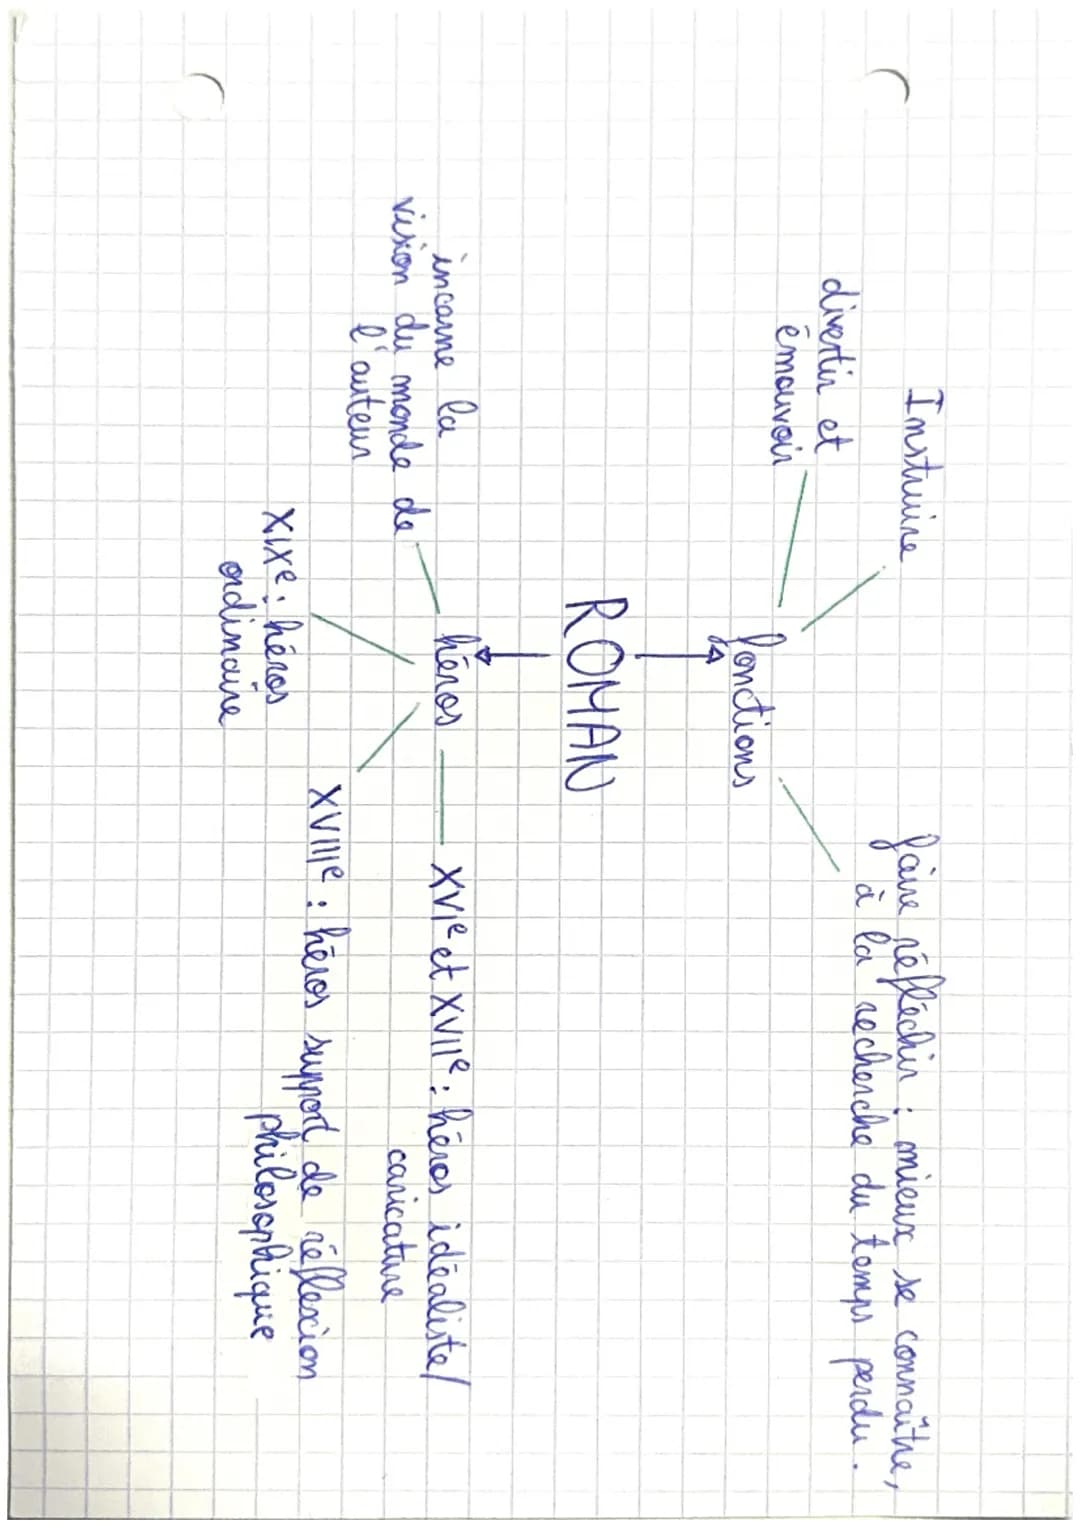 Instruire
divertir et
émouvoir
faire réfléchir : mieux se connaître,
à la recherche du temps perdu.
fonctions
ROMAN
héros
incarne la
vision du monde de
l'auteur
XVIe et XVIIe : héros idéaliste/
caricature
XVIIIe : héros support de réflexion
philosophique
XIXe : héros
ordinaire